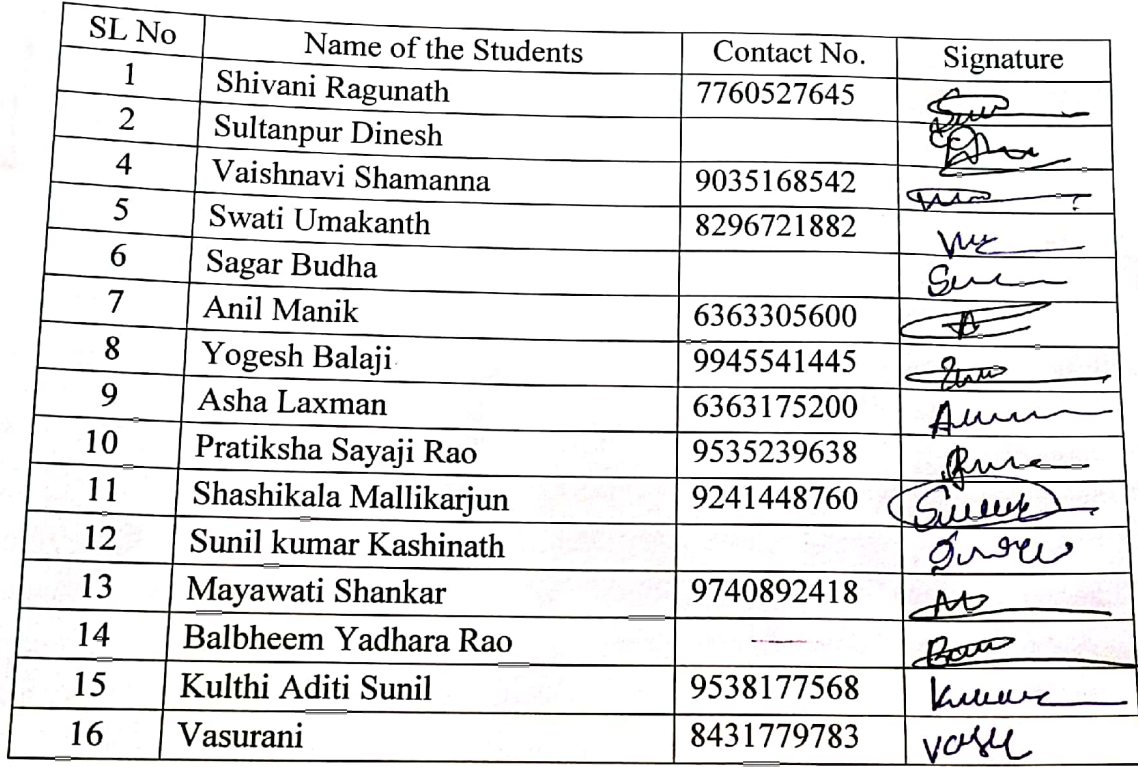 SL No Name of the Students Contact No. Signature
1 Shivani Ragunath 7760527645
2 Sultanpur Dinesh
4 Vaishnavi Shamanna 9035168542
5 Swati Umakanth 8296721882
6 Sagar Budha
7 Anil Manik 6363305600
8 Yogesh Balaji 9945541445
9 Asha Laxman 6363175200
10 Pratiksha Sayaji Rao 9535239638
11 Shashikala Mallikarjun 9241448760
12 Sunil kumar Kashinath
13 Mayawati Shankar 9740892418
14 Balbheem Yadhara Rao
15 Kulthi Aditi Sunil 9538177568
16 Vasurani 8431779783